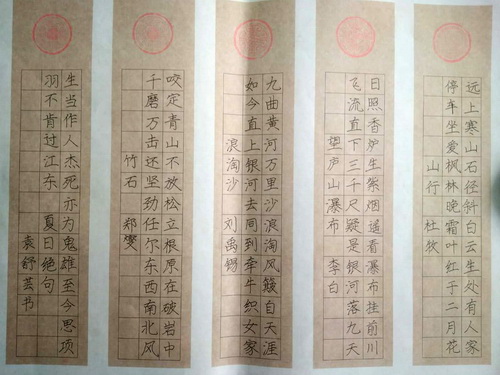 远上寒山石径斜白云生处有人家
停车坐爱枫林晚霜叶红于二月花
山行 杜牧
日照香炉生紫烟遥看瀑布挂前川
飞流直下三千尺疑是银河落九天
望庐山瀑布 李白
九曲黄河万里沙浪淘风簸自天涯
如今直上银河去同到牵牛织女家
浪淘沙 刘禹锡
咬定青山不放松立根原在破岩中
千磨万击还坚劲任尔东西南北风
竹石 郑燮
生当作人杰死亦为鬼雄至今思项
羽不肯过江东 夏日绝句
袁舒芸书